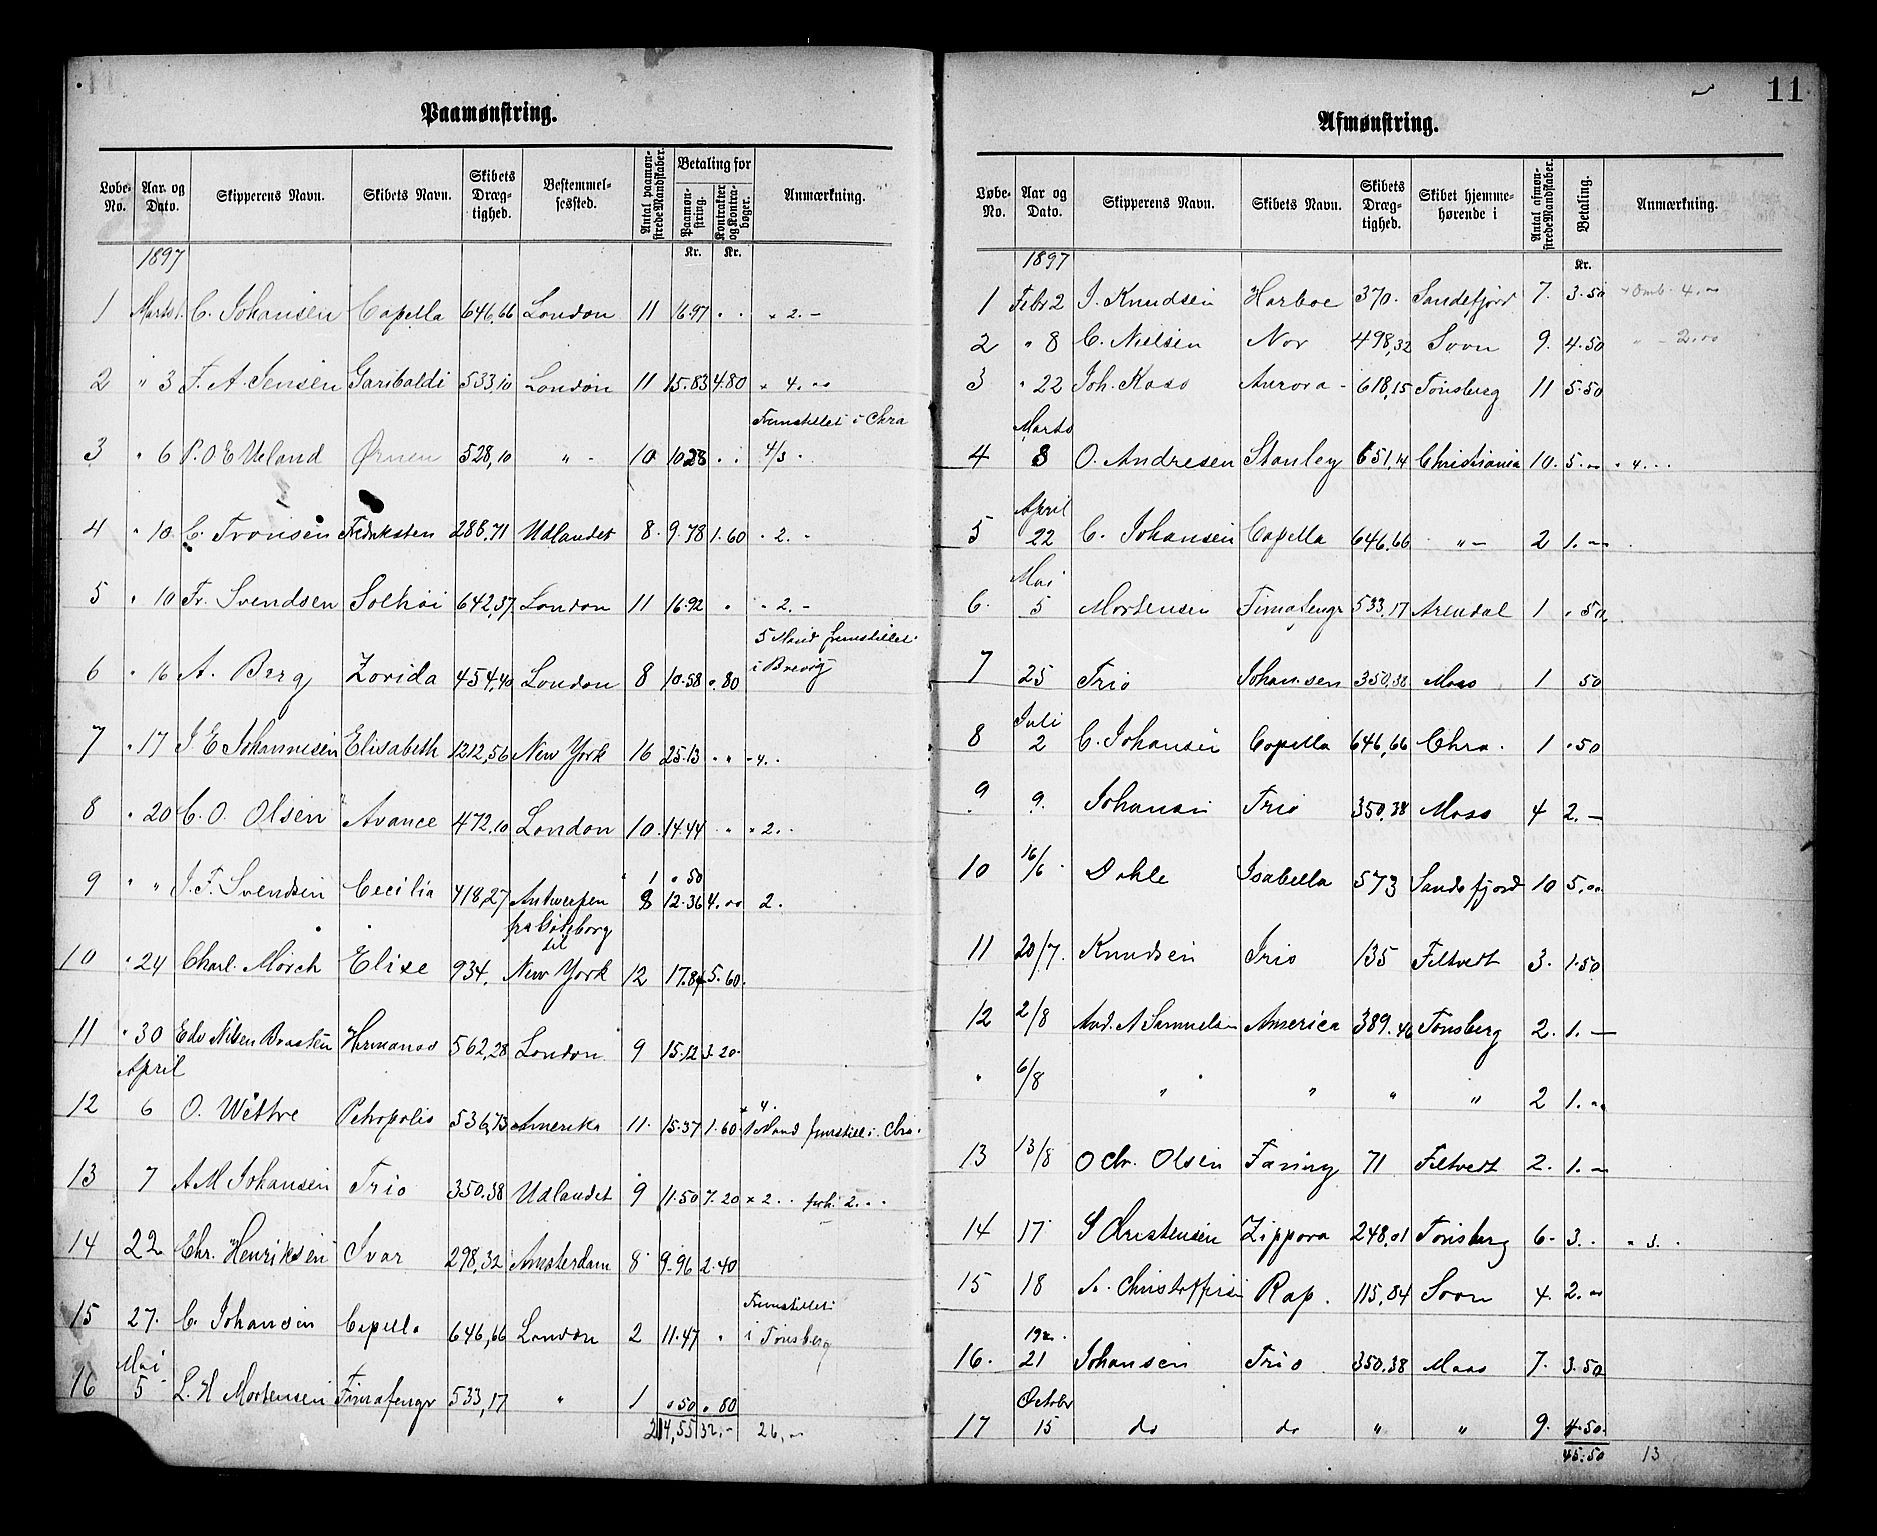 11
Paamønstring.
Løbe-No. Aar og Dato. Skipperens Navn. Skibets Navn. Skibets Dræg-tighed. Bestemmel-sessted. Antal paamøn-strede Mandskaber. Betaling for Paamøn-string. Kontrakter og Kontra-bøger. Anmærkning.
1897 Kr. Kr.
1 Marts 1. C. Johansen Capella 646,66 London 11 16.97 " " " 2.-
2 " 3 F. A. Jensen Garibaldi 533,10 London 11 15.83 4.80 " 4.00
3 " 6 P. O E Ueland Ørnen 528,10 " - 10 Fremstillet i Chra 4/3
4 " 10 C. Tronsen Fredriksten 288,71 Udlandet 8. 9.78 1.60 " 2. -
5 " 10 Fr. Svendsen Solhøi 642,37 London 11 16.92 " " 2.-
6 " 16 A. Berg Zorida 454,40 London 8 10.58 ".80 5 Mand fremstillet i Brevig
7 " 17 J E Johannesen Elisabeth 1212,56 New York 16 25.13 " " " 4. "
8 " 20 C. O. Olsen Avance 472,10 London 10. 14.44 " " " 2. "
9 " " J. F. Svendsen Cecilia 418,27 Antwerpen " 1 " 50
8 12.36 4.00 2.
10 " 24 Charl. Mörch Elise 934. fra Gøteborg til New York 12 17.84 5.60
11 " 30 Edv Nilsen Braaten Hermanos 562,28 London 9 15.12 3.20
April
12 6 O. Wettre Petropolis 536,73 Amerika 11. 15.37 1.60 " 4. 1 Mand fremstill i Chra.
13 7 A M Johansen Trio 350,38 Udlandet 9 11.50 7.20 " 2. "
14 22 Chr. Henriksen Ivar 298,32 Amsterdam 8 9.96 2.40
15 27. C. Johansen Capella 646,66 London 2 11.47 " Fremstillet i Tønsberg
Mai
16 5 L. H Mortensen Fimafengr 533,17 " 1 " 50 " 80
214,55 32,- 26,-
Afmønstring.
Løbe-No. Aar og Dato. Skipperens Navn. Skibets Navn. Skibets Dræg-tighed. Skibet hjemme-hørende i Antal afmøn-strede Mandskaber. Betaling. Anmærkning.
1897 Kr.
1 Febr 2 J. Knudsen Harboe 370. Sandefjord 7. 3.50 + Omb. 4.00
2 " 8 C. Nielsen Nor 498,32 Soon 9. 4.50 " - 2.00
3 " 22 Joh. Kass Aurora - 618,15 Tønsberg 11 5.50
Marts
4 8 O. Andresen Stanley 651,14 Christiania 10. 5.00 " 4. "
April
5 22 C. Johansen Capella 646,66 " - 2 1.-
Mai
6. 5 Mortensen Fimafengr 533,17 Arendal 1 " 50
7 25 Trio Johansen 350,38 Moss 1 50
Juli
8 2 C. Johansen Capella 646,66 Chra. 1 " 50
9 9. Johansen Trio 350,38 Moss 4 2.-
10 16/6 Dahle Isabella 573 Sandefjord 10 5.00
11 20/7. Knudsen Trio 135 Filtvedt 3. 1.50
12 2/8 And. A Samuelsen America 389.46 Tønsberg 2. 1.-
" 6/8 " " " " 2 1.00
13 13/8 O Chr. Olsen Fanny 71 Filtvedt 2. 1.-
14 17 S Christensen Zippora 248,01 Tønsberg 6. 3. " " 3. "
15 18 A. Christoffersen Rap. 115,84 Soon 4. 2.00
16. 21 Johansen Trio 350.38 Moss 7. 3.50
October
17 15 do do " " 9. 4.50
45.50 13